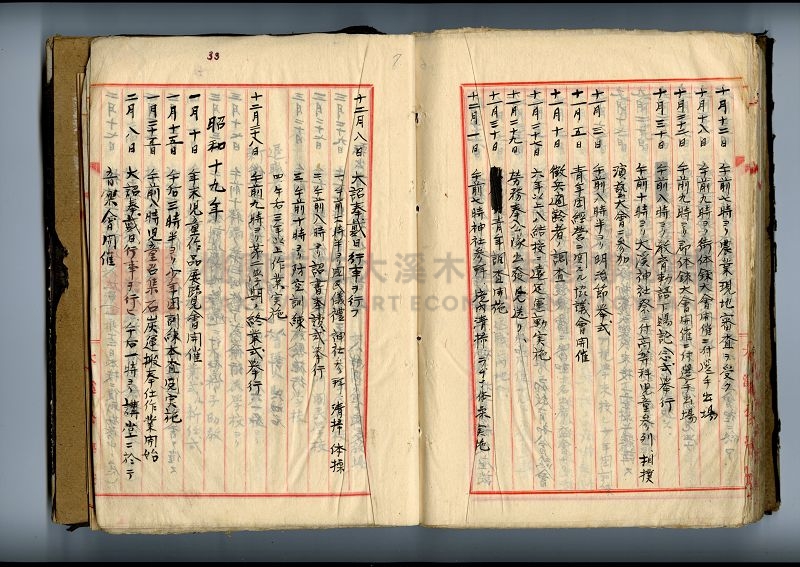 十月十二日　午前七時ヨリ農業現地審査ヲ受ク
十月十八日　午前九時ヨリ街体錬大会開催ニ付選手出場
十月二十三日　午前九時ヨリ郡体錬大会開催ニ付選手出場
十月三十日　午前八時ヨリ教育勅語下賜記念式挙行
午前十時ヨリ大溪神社祭ニ付高等科児童参列、相撲
演芸大会参加
十一月三日　午前八時半ヨリ明治節挙式
十一月五日　青年団経営ニ関スル協議会開催
十一月十日　徴兵適齢者ノ調査
十一月二十七日　六年以上八結校ニ遠足運動実施
十一月二十九日　労務奉公隊出発見送リ
十一月三十日　青年調査開始
十二月一日　午前七時神社参拝、境内清掃、ラヂオ体操実施
33
十二月八日　大詔奉戴日行事ヲ行フ
一、午前六時半ヨリ国民儀礼、神社参拝、清掃、体操
二、午前八時ヨリ詔書奉読式挙行
三、午前十時ヨリ防空訓練
四、午后三年以上作業実施
十二月二十八日　午前九時ヨリ第二学期ノ終業式挙行
昭和十九年
一月十日　年末児童作品展覧会開催
一月十五日　午后三時半ヨリ少年団訓練本査閲実施
一月二十五日　午前八時児童召集石炭運搬奉仕作業開始
二月八日　大詔奉戴日行事ヲ行ヒ午后一時ヨリ講堂ニ於テ
音楽会開催
大溪木
ART ECONO